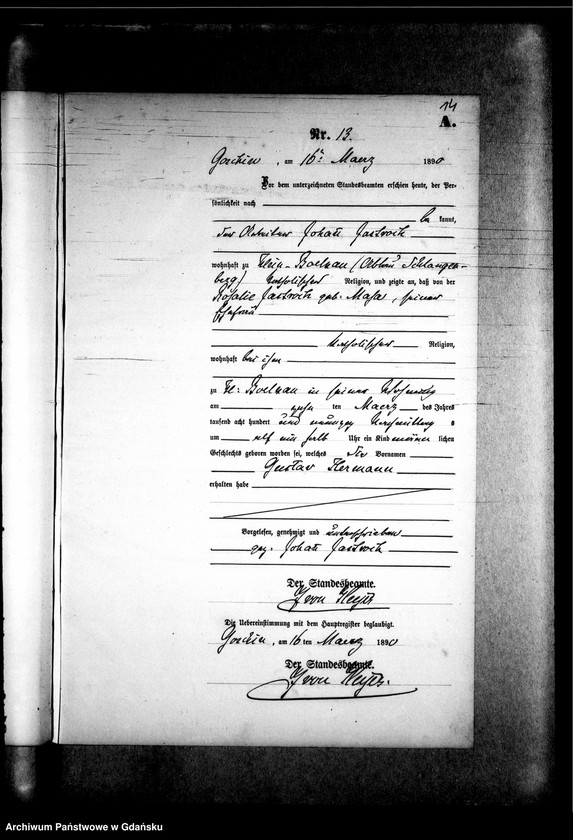 14
A.
Nr. 13.
Goschin, am 16ten Maerz 1890
Vor dem unterzeichneten Standesbeamten erschien heute, der Per-
sönlichkeit nach
kannt,
der Arbeiter Johann Jastroch
wohnhaft zu Klein-Boelkau (Schlangen-
berg) katholischer Religion, und zeigte an, daß von der
Rosalie Jastroch geb. Masa, seiner
Ehefrau
katholischer Religion,
wohnhaft bei ihm
zu Kl: Boelkau in seiner Wohnung
am zehn ten Maerz des Jahres
tausend acht hundert und neunzig Nachmittag s
um elf ein halb Uhr ein Kind männ lichen
Geschlechts geboren worden sei, welches die Vornamen
Gustav Hermann
erhalten habe
Vorgelesen, genehmigt und unterschrieben
gez. Johann Jastroch
Der Standesbeamte.
von
Die Uebereinstimmung mit dem Hauptregister beglaubigt.
Goschin, am 16 ten Maerz 1890
Der Standesbeamte.
von
Archiwum Państwowe w Gdańsku